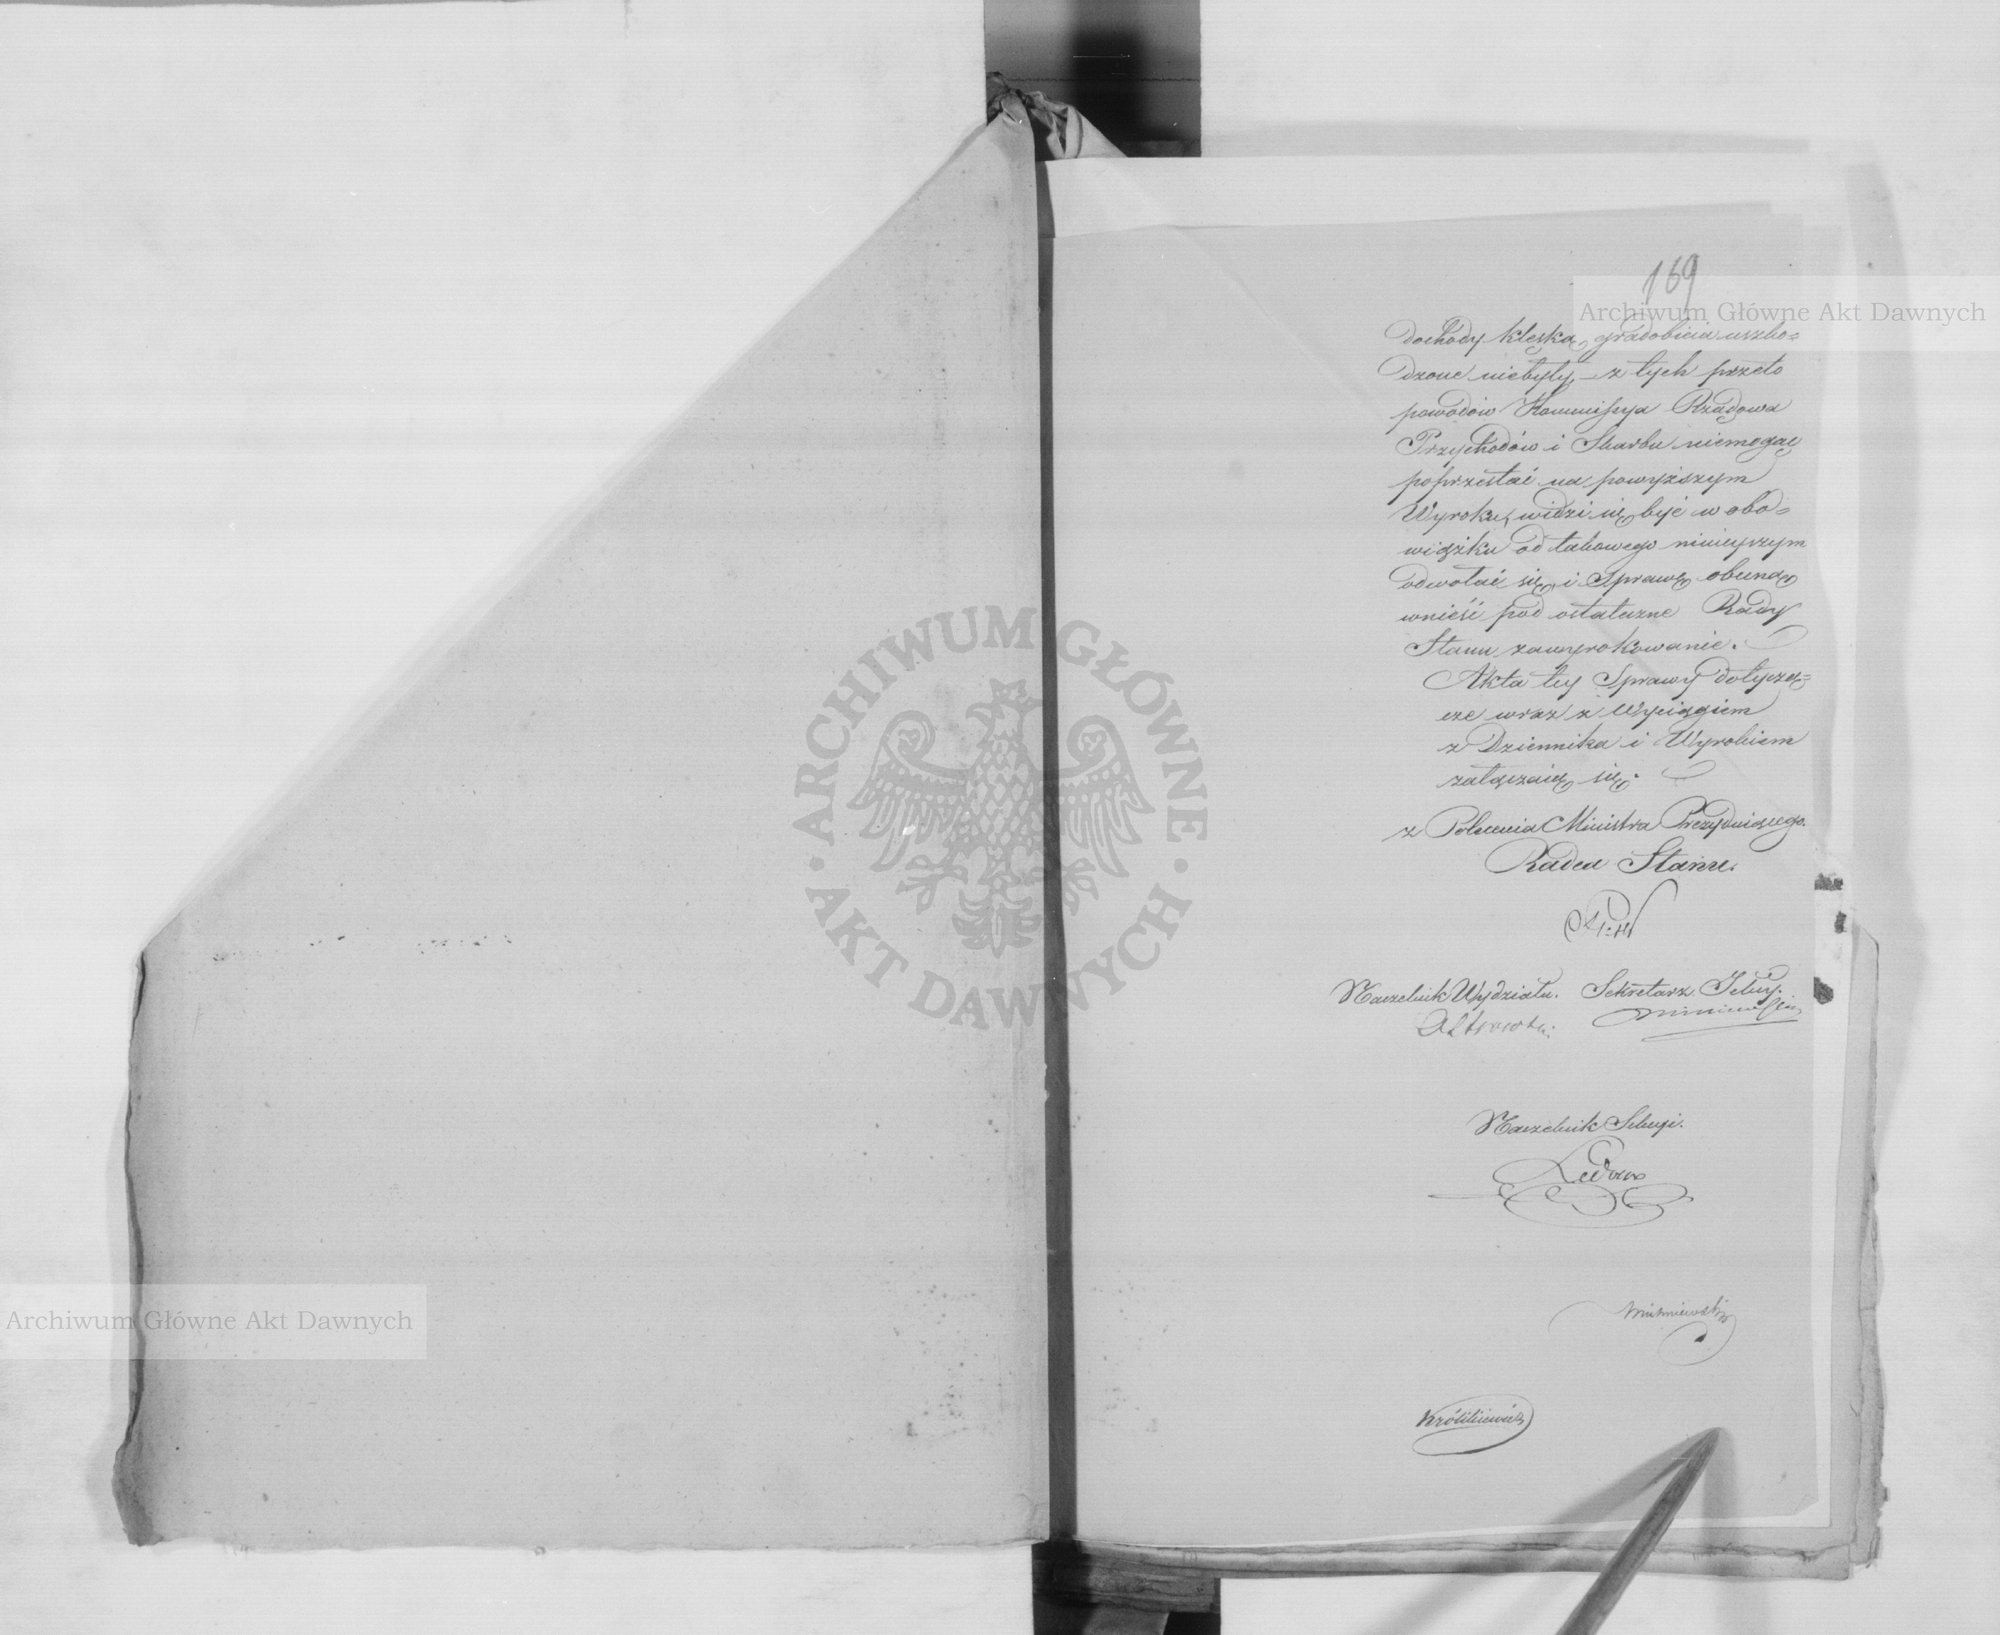 169
Archiwum Główne Akt Dawnych
dochody klęską gradobicia uszko=
dzone niebyły, z tych przeto
powodów Kommissya Rządowa
Przychodów i Skarbu niemogąc
poprzestać na powyższym
Wyroku, widzi się być w obo=
wiązku od takowego ninieyszym
odwołać się, i Sprawę obecną
wnieść pod ostateczne Rady
Stanu zawyrokowanie.
Akta tey Sprawy dotyczą=
cze wraz z Wyciągiem
z Dziennika i Wyrokiem
załączaią się.
z Polecenia Ministra Prezyduiącego.
Radca Stanu.
Naczelnik Wydziału. Sekretarz Jlny.
Naczelnik Sekcyi.
ARCHIWUM GŁÓWNE
· AKT DAWNYCH ·
Archiwum Główne Akt Dawnych